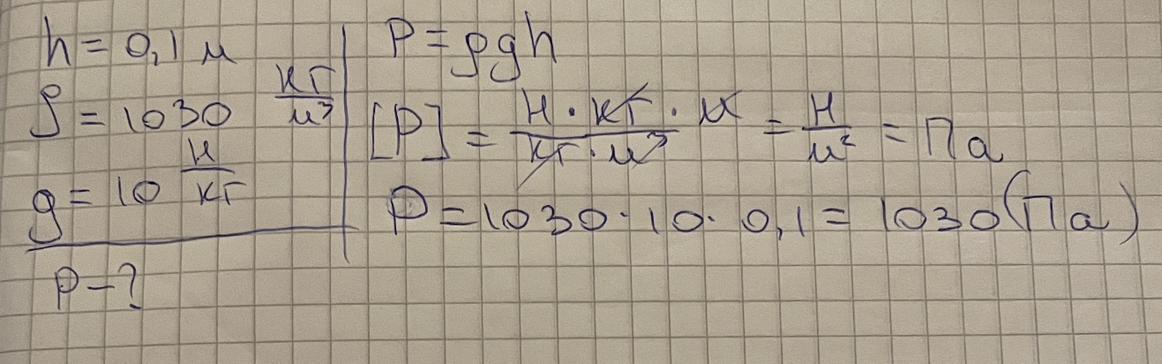 h = 0,1 м
ρ = 1030 кг/м³
g = 10 н/кг
p - ?
P = ρgh
[P] = н · кг · м / кг · м³ = н/м² = Па
P = 1030 · 10 · 0,1 = 1030 (Па)